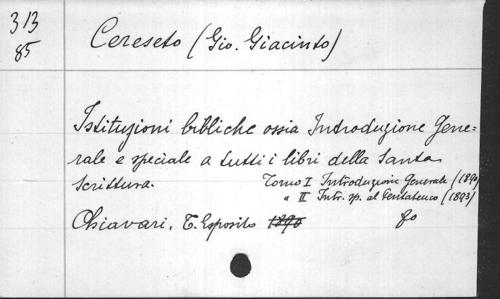 313
85
Cereseto (Gio. Giacinto)
Istituzioni bibliche ossia Introduzione Gene=
rale e speciale a tutti i libri della Santa
Scrittura.
Tomo I Introduzione Generale (1890)
" II Intr. sp. al Pentateuco (1893)
Chiavari, T. Esposito 1890 fo